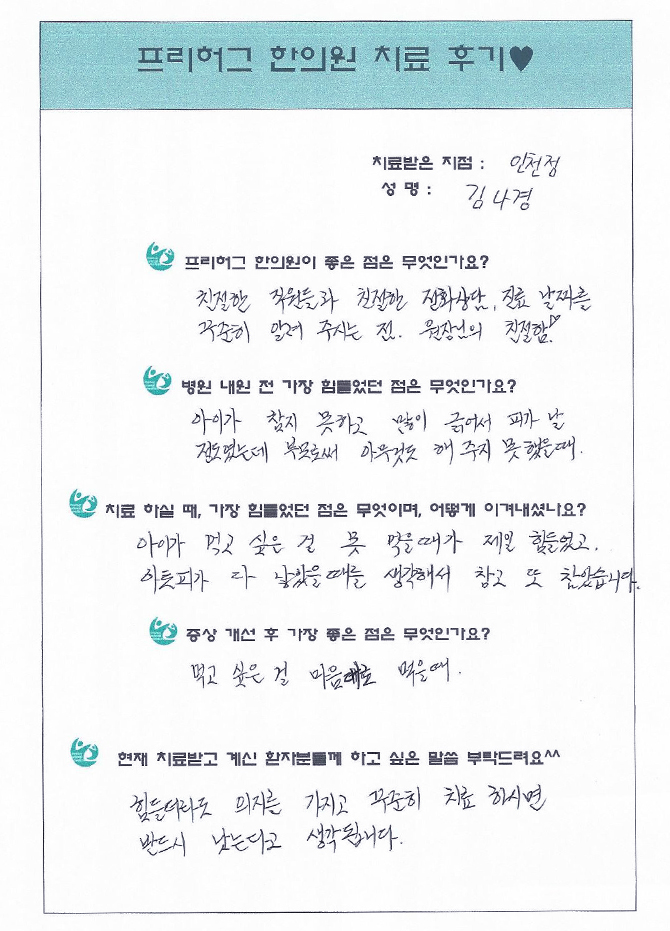 프리허그 한의원 치료 후기♥
치료받은 지점 : 인천점
성 명 : 김나경
프리허그 한의원이 좋은 점은 무엇인가요?
친절한 직원들과 친절한 전화상담, 진료 날짜를
꾸준히 알려 주시는 점. 원장님의 친절함♡
병원 내원 전 가장 힘들었던 점은 무엇인가요?
아이가 참지 못하고 많이 긁어서 피가 날
정도였는데 부모로써 아무것도 해 주지 못했을때.
치료 하실 때, 가장 힘들었던 점은 무엇이며, 어떻게 이겨내셨나요?
아이가 먹고 싶은 걸 못 먹을때가 제일 힘들었고,
아토피가 다 낳았을때를 생각해서 참고 또 참았습니다.
증상 개선 후 가장 좋은 점은 무엇인가요?
먹고 싶은 걸 마음대로 먹을때.
현재 치료받고 계신 환자분들께 하고 싶은 말씀 부탁드려요^^
힘들더라도 의지를 가지고 꾸준히 치료 하시면
반드시 낫는다고 생각됩니다.